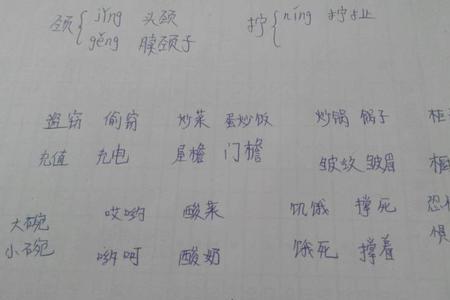 颈{jǐng 头颈 拧{níng 拧止
gěng 脖颈子
盗窃 偷窃 炒菜 蛋炒饭 炒锅 锅子
充值 充电 屋檐 门檐 皱纹 皱眉
大碗 哎哟 酸菜 饥饿 撑死
小碗 哟呵 酸奶 饿死 撑着